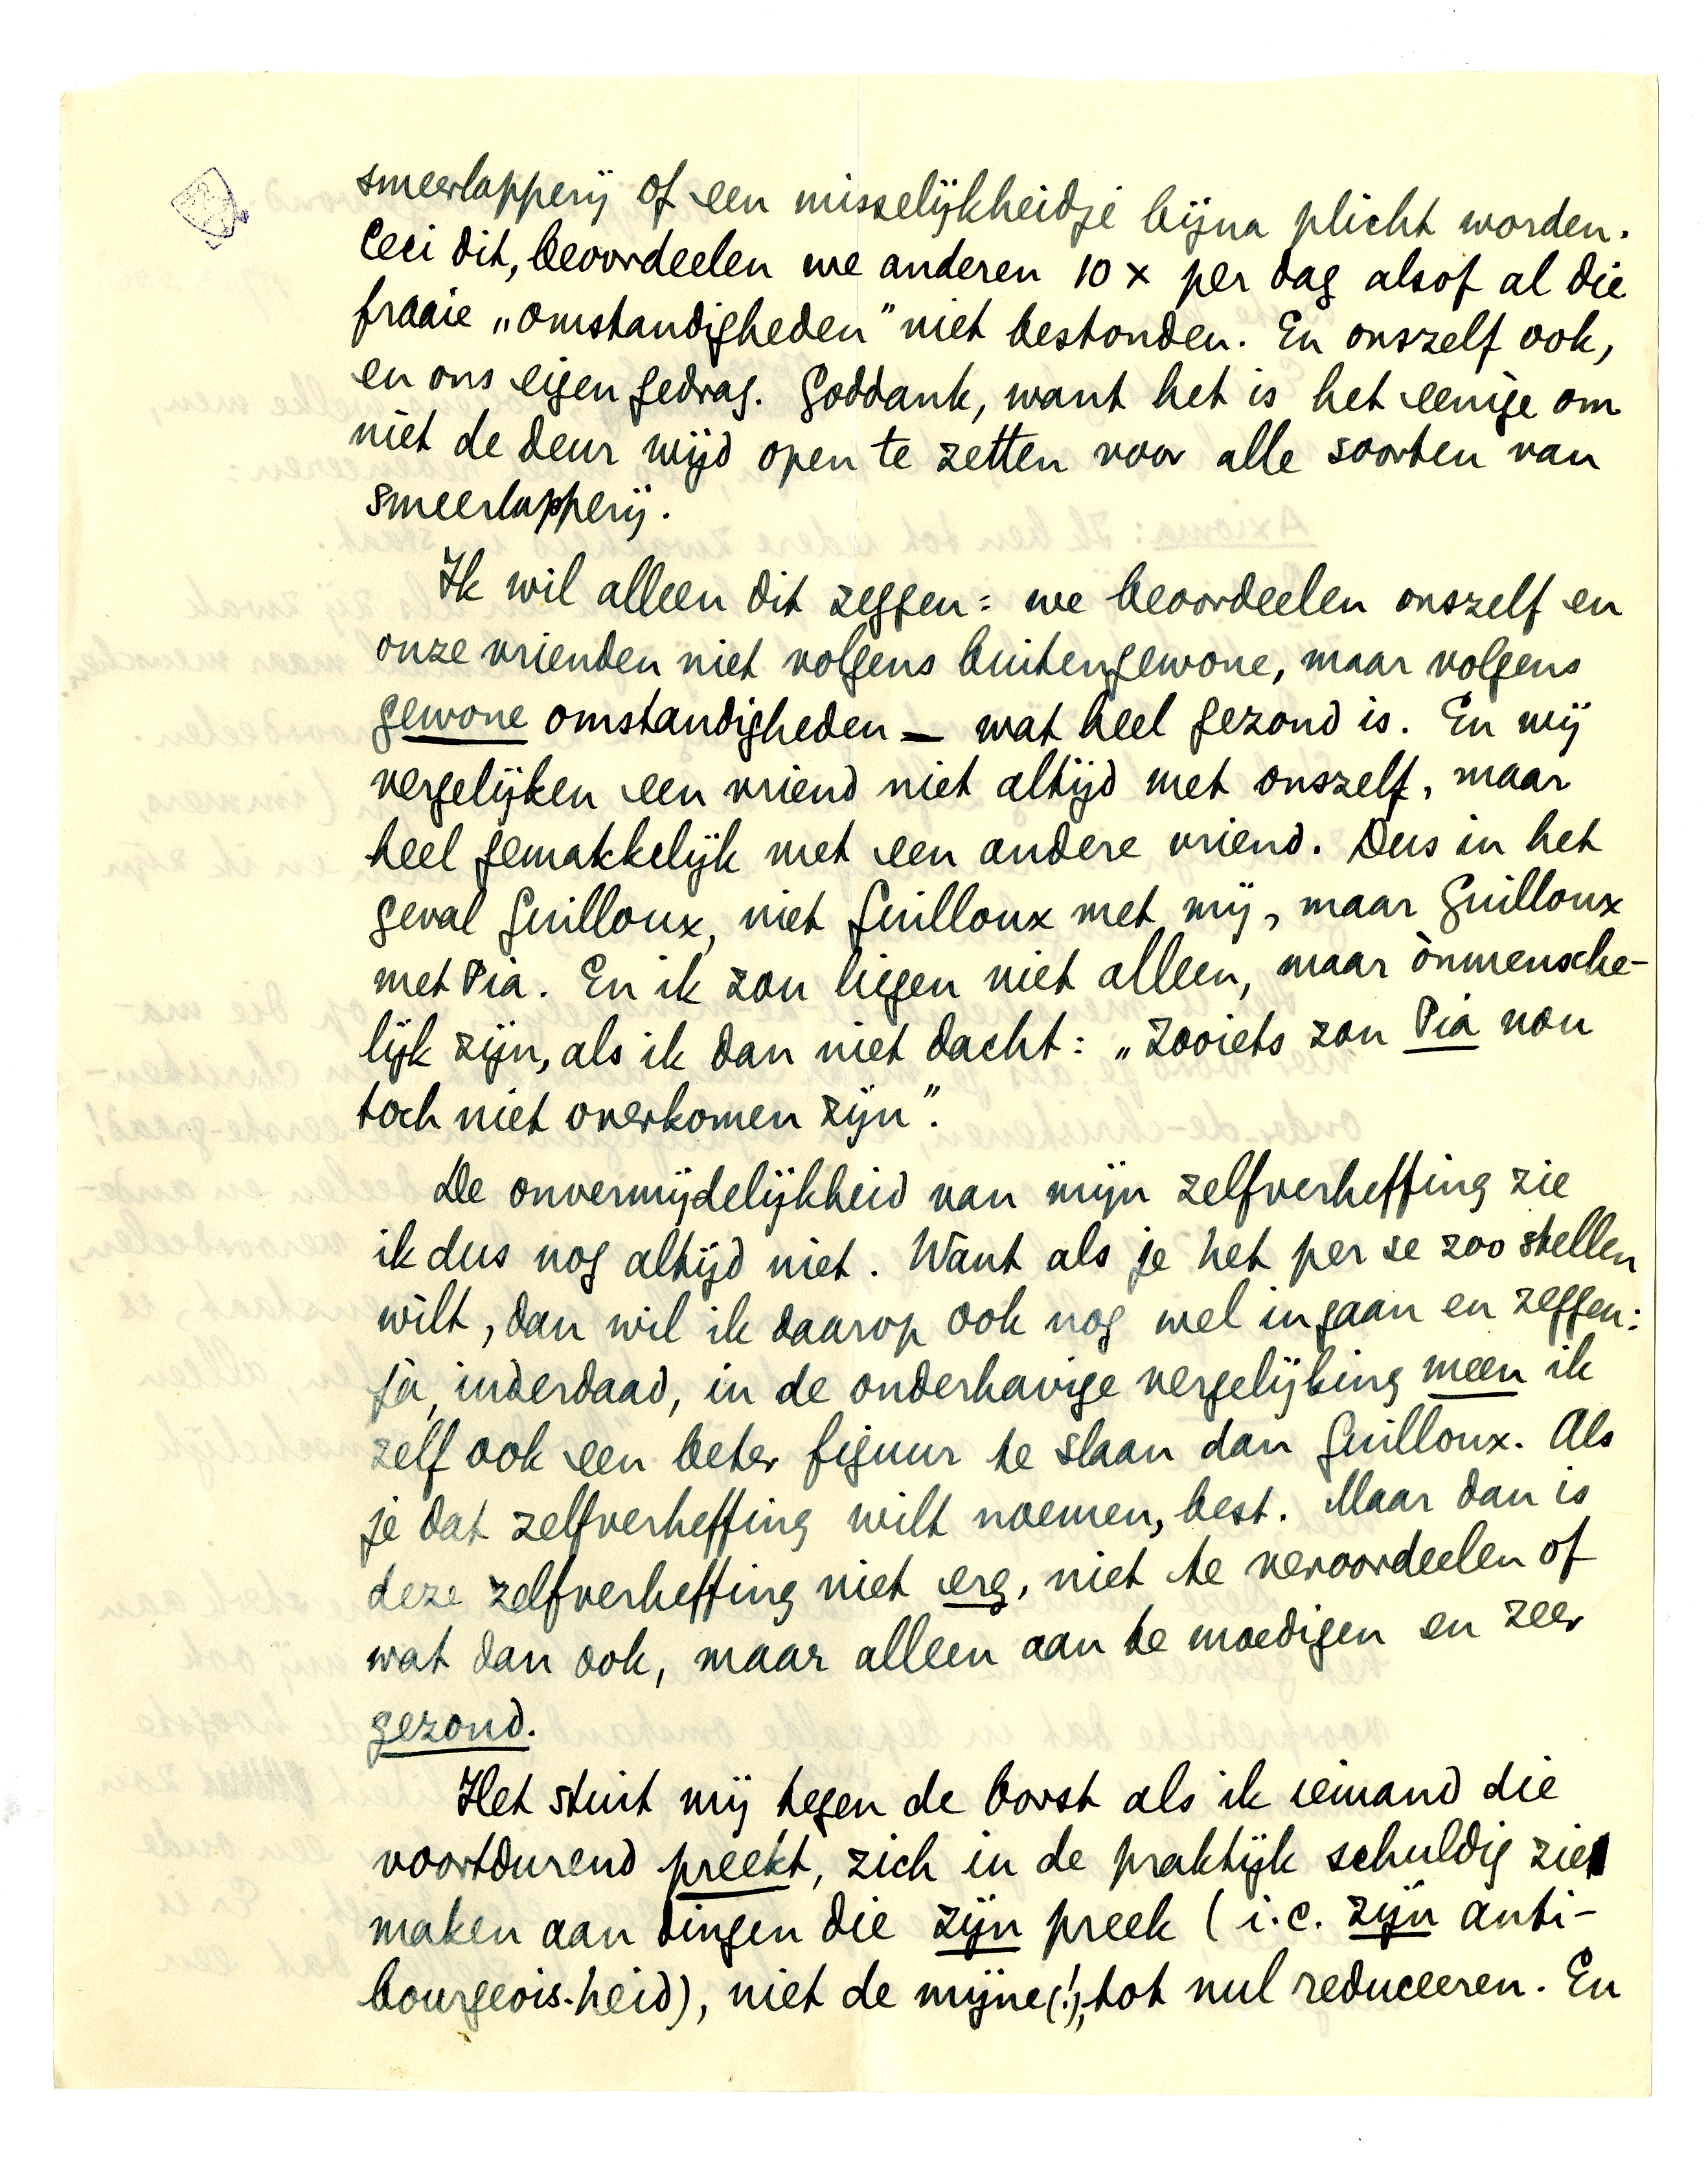 smeerlapperij of een misselijkheidje bijna plicht worden.
Ceci dit, beoordeelen we anderen 10 x per dag alsof al die
fraaie „omstandigheden” niet bestonden. En onszelf ook,
en ons eigen gedrag. Goddank, want het is het eenige om
niet de deur wijd open te zetten voor alle soorten van
smeerlapperij.
Ik wil alleen dit zeggen: we beoordeelen onszelf en
onze vrienden niet volgens buitengewone, maar volgens
gewone omstandigheden — wat heel gezond is. En wij
vergelijken een vriend niet altijd met onszelf, maar
heel gemakkelijk met een andere vriend. Dus in het
geval Guilloux, niet Guilloux met mij, maar Guilloux
met Pia. En ik zou liegen niet alleen, maar ònmensche-
lijk zijn, als ik dan niet dacht: „Zooiets zou Pia nou
toch niet overkomen zijn”.
De onvermijdelijkheid van mijn zelfverheffing zie
ik dus nog altijd niet. Want als je het per se zoo stellen
wilt, dan wil ik daarop ook nog wel ingaan en zeggen:
jà, inderdaad, in de onderhavige vergelijking meen ik
zelf ook een beter figuur te slaan dan Guilloux. Als
je dat zelfverheffing wilt noemen, best. Maar dan is
deze zelfverheffing niet erg, niet te veroordeelen of
wat dan ook, maar alleen aan te moedigen en zeer
gezond.
Het stuit mij tegen de borst als ik iemand die
voortdurend preekt, zich in de praktijk schuldig zie
maken aan dingen die zijn preek (i.c. zijn anti-
bourgeois-heid), niet de mijne(!), tot nul reduceeren. En